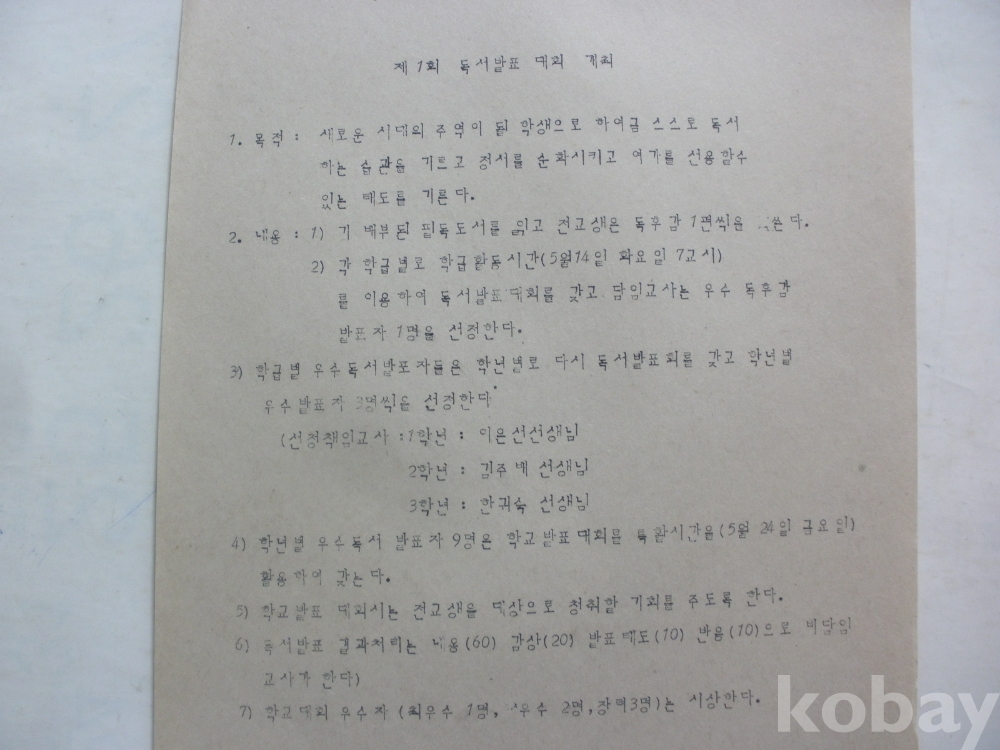 제1회 독서발표 대회 계획
1. 목적 : 새로운 시대의 주역이 될 학생으로 하여금 스스로 독서
하는 습관을 기르고 정서를 순화시키고 여가를 선용할수
있는 태도를 기른다.
2. 내용 : 1) 기 배부된 필독도서를 읽고 전교생은 독후감 1편씩을 쓴다.
2) 각 학급별로 학급활동시간(5월14일 화요일 7교시)
를 이용하여 독서발표대회를 갖고 담임교사는 우수 독후감
발표자 1명을 선정한다.
3) 학급별 우수독서발표자들은 학년별로 다시 독서발표회를 갖고 학년별
우수발표자 3명씩을 선정한다
(선정책임교사 :1학년 : 이은선선생님
2학년 : 김주배 선생님
3학년 : 한귀숙 선생님
4) 학년별 우수독서 발표자 9명은 학교발표대회를 특활시간을(5월 24일 금요일)
활용하여 갖는다.
5) 학교발표 대회시는 전교생을 대상으로 청취할 기회를 주도록 한다.
6) 독서발표 결과처리는 내용(60) 감상(20) 발표태도(10) 반응(10)으로 비담임
교사가 한다)
7) 학교대회 우수자 (최우수 1명, 우수 2명,장려3명)는 시상한다.
kobay